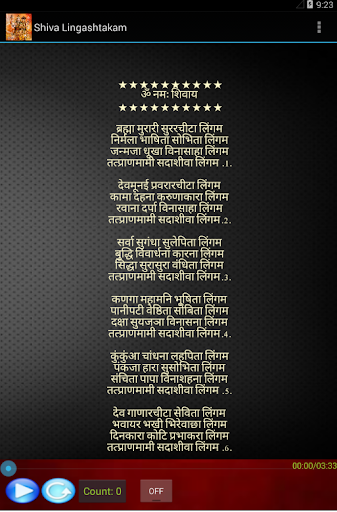 9:23
Shiva Lingashtakam
★★★★★★★★★★
ॐ नमः शिवाय
★★★★★★★★★★
ब्रह्मा मुरारी सुररचीटा लिंगम
निर्मला भाषिता सोभिता लिंगम
जन्मजा धूखा विनासाहा लिंगम
तत्प्राणमामी सदाशीवा लिंगम .1.
देवमूनई प्रवरारचीटा लिंगम
कामा दहना करुणाकारा लिंगम
रवाना दर्पा विनासाहा लिंगम
तत्प्राणमामी सदाशीवा लिंगम.2.
सर्वा सुगंधा सुलेपिता लिंगम
बुद्धि विवार्धना कारना लिंगम
सिद्धा सुरासुरा वंधिता लिंगम
तत्प्राणमामी सदाशीवा लिंगम.3.
कणगा महामनि भूषिता लिंगम
पानीपटी वेष्ठिता सोबिता लिंगम
दक्षा सुयजञा विनासना लिंगम
तत्प्राणमामी सदाशीवा लिंगम.4.
कुंकुंआ चांधना लहपिता लिंगम
पंकजा हारा सुसोभिता लिंगम
संचिता पापा विनाशहना लिंगम
तत्प्राणमामी सदाशीवा लिंगम.5.
देव गाणारचीटा सेविता लिंगम
भवायर भखी भिरेवाछा लिंगम
दिनकारा कोटि प्रभाकरा लिंगम
तत्प्राणमामी सदाशीवा लिंगम .6.
00:00/03:33
Count: 0
OFF